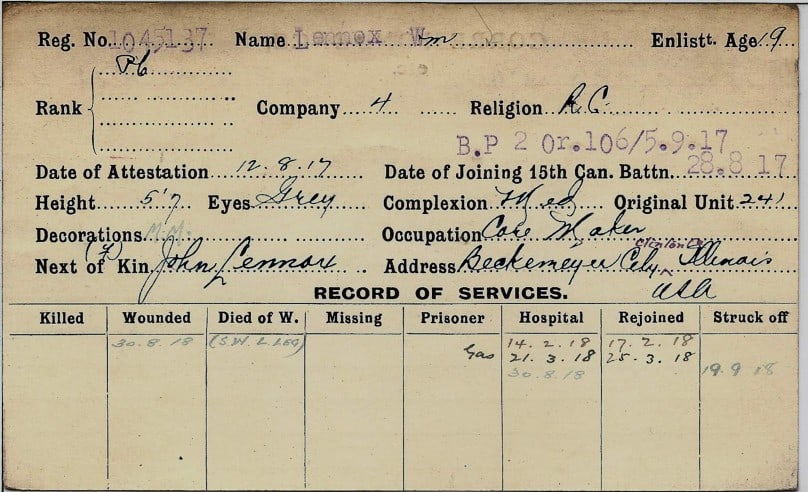 Reg. No. 1045137 Name Lennox Wm Enlistt. Age 19
Pte
Rank Company 4 Religion R.C.
B.P 2 Or.106/5.9.17
Date of Attestation 12.8.17 Date of Joining 15th Can. Battn. 28.8 17
Height 5'7 Eyes Grey Complexion Med Original Unit 241
Decorations M.M. Occupation Core Maker
Next of Kin (F) John Lennox Address Beckemeyer City Clinton Co Illinois
USA
RECORD OF SERVICES.
Killed Wounded Died of W. Missing Prisoner Hospital Rejoined Struck off
30.8.18 (S.W. L. LEG) 14.2.18 17.2.18
Gas 21.3.18 25-3.18
30.8.18 19.9 18